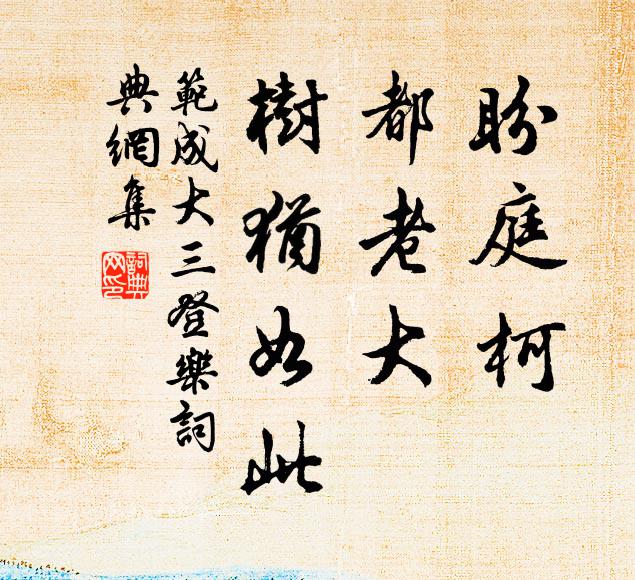 盼庭柯
都老大
樹猶如此
範成大三登樂詞
典網集
詞典
網印